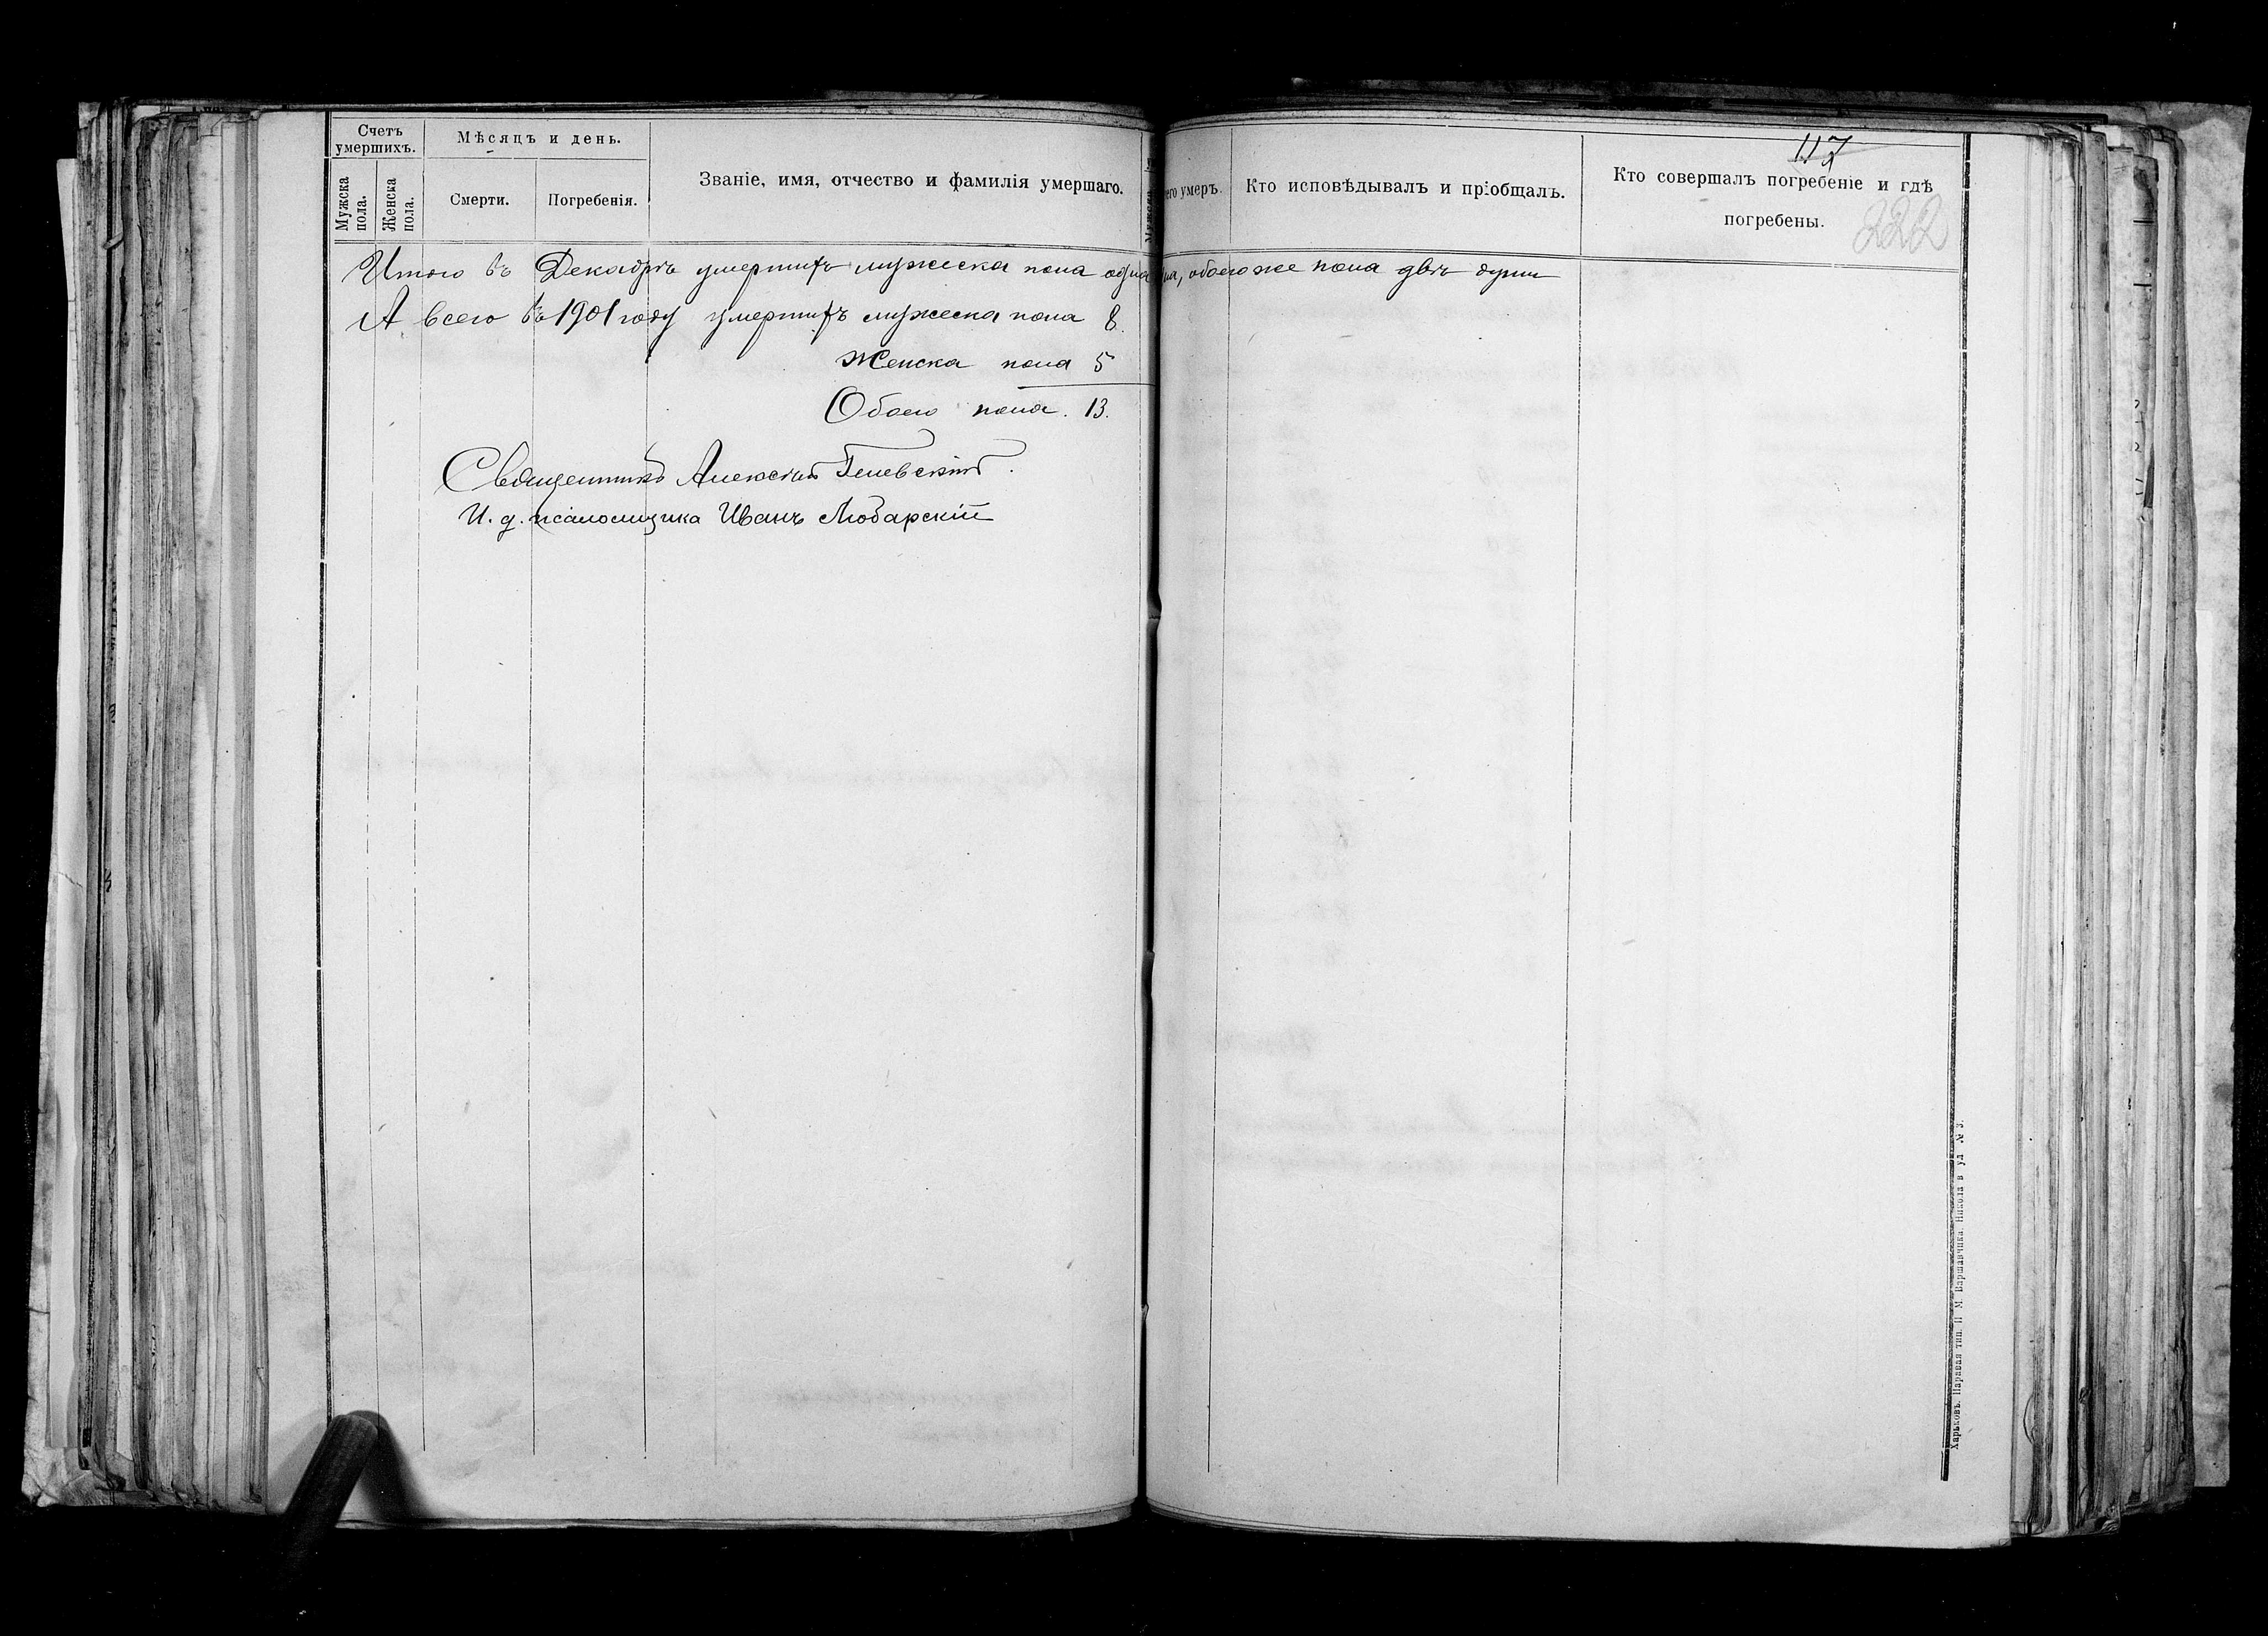 Счетъ умершихъ.
Мужска пола.
Женска пола.
Мѣсяцъ и день.
Смерти.
Погребенія.
Званіе, имя, отчество и фамилія умершаго.
его умеръ.
Кто исповѣдывалъ и пріобщалъ.
Кто совершалъ погребеніе и гдѣ
погребены.
117
222
Итого въ Декабрѣ умершихъ мужеска пола одна, обоего же пола двѣ души
А всего въ 1901 году умершихъ мужеска пола 8.
Женска пола 5
Обоего пола. 13.
Священникъ Алексѣй
И. д. псаломщика Иванъ Любарскій
Харьковъ. Паровая тип. П М. Варшавчика. Никола в ул № 3.